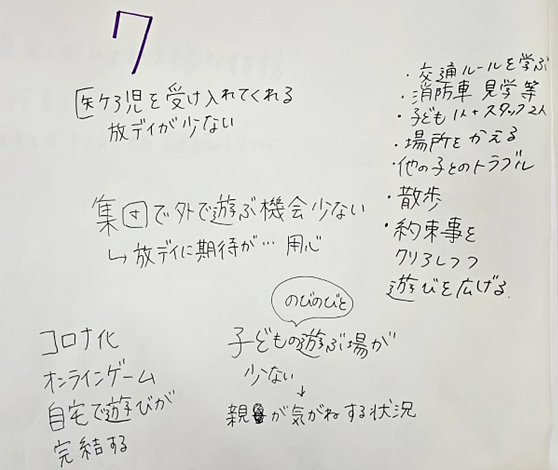 7
医ケア児を受け入れてくれる
放デイが少ない
集団で外で遊ぶ機会少ない
↳放デイに期待が… 用心
コロナ化
オンラインゲーム
自宅で遊びが
完結する
のびのびと
子どもの遊ぶ場が
少ない
↓
親が気がねする状況
・交通ルールを学ぶ
・消防車 見学等
・子ども1人+スタッフ2人
・場所をかえる
・他の子とのトラブル
・散歩
・約束事を
クリアしつつ
遊びを広げる.